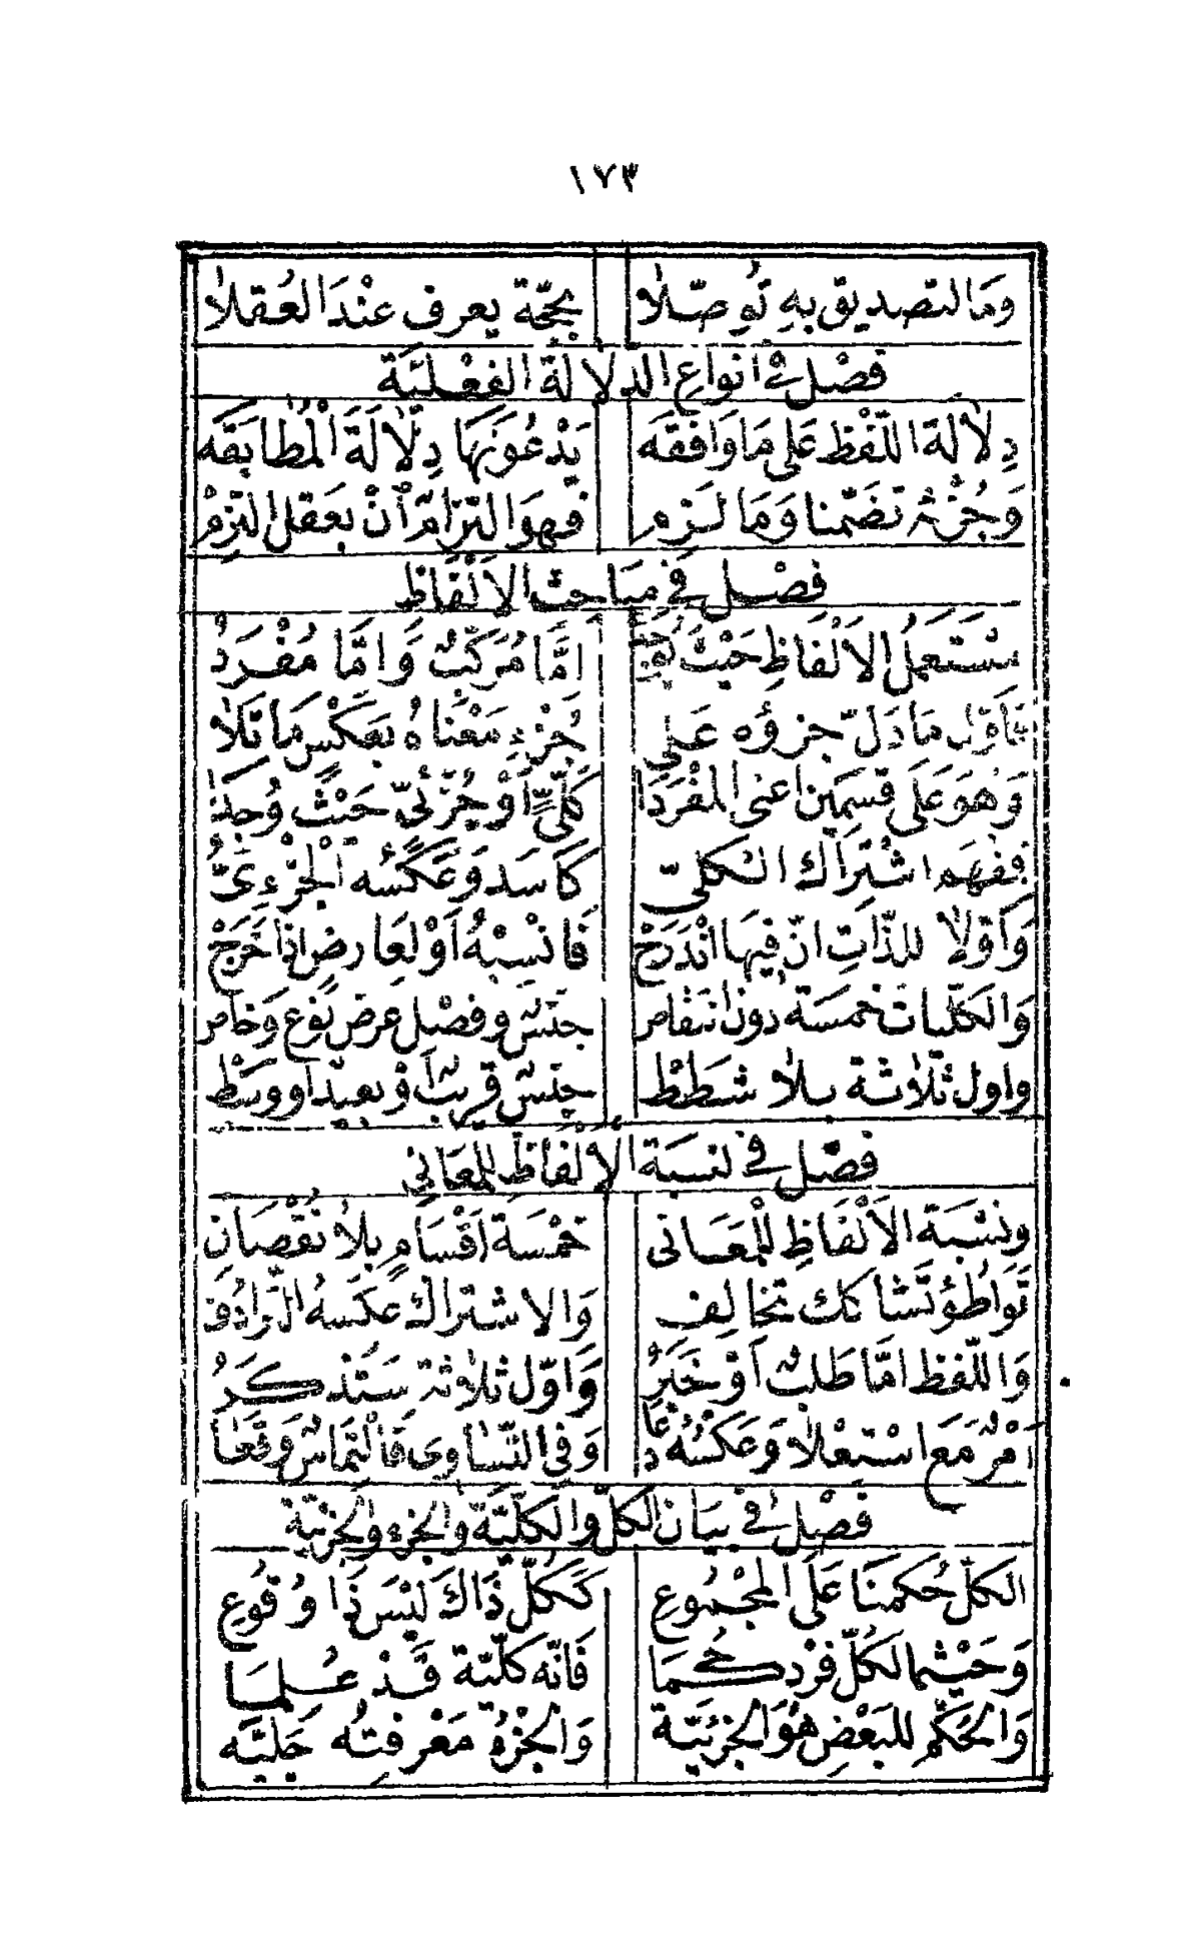 ١٧٣
وَمَا لتصديق بهِ تُوصّلاٰ بحجّة يعرف عنْدَ العُقلاٰ
فصْل فى أنواعِ الدلالة الفعْليَّة
دِلاٰلة اللّفْظ عَلى مَا وَافقَه يَدْعُونَهَا دِلّاٰلَةَ الْمُطَابَقَه
وَجُزْئِه تضَمّنا وَمَا لَزم فهوَ التزامٌ أنْ بعَقل التزمْ
فصْل في مبَاحث الاَلْفَاظ
مسْتَعمَلُ الاَلْفَاظِ حَيْثُ امَّا مُرَكّبٌ وَامَّا مُفْرَدُ
فَاَوّل مَا دَلّ جزؤه عَلى جُزْءِ مَعْنَاهُ بعَكْسِ مَا تَلاٰ
وَهُوَ عَلى قسمَين اعنى المفْرَدَا كُلّىٍّ أوْ جُزْئىّ حَيْثُ وُجِدَا
ففهَم اشْترَاك الكلىّ كَأسَد وَعَكْسُه الْجُزْءِىُّ
وَأوّلاٰ للذّاتِ انّ فيهَا انْدَرَجْ فَانسِبْهُ أوْ لِعَارضٍ اذا خَرَجْ
وَالكلّيات خمسَة دُون انتقاص جنسٌ وفصْل عرض نَوْع وَخاص
واول ثلاثة بلاٰ شَطَطْ جنسٌ قريبٌ أوْ بعيدٌ او وسَطْ
فصْل في نسبَة الاٰلْفاظ للمعَاني
ونسْبَة الاَلْفَاظِ للْمَعَانى خمْسَة أقْسَامٍ بلاٰ نُقْصَانِ
تَوَاطُؤ تَشَاكك تخالف وَالاشتراك عَكسُهُ الترَادُف
وَاللّفظ امّا طَلبٌ أوْ خَبَرُ وَاوّل ثلاٰثة سَتُذْكَرُ
أمْرٌ مَعَ اسْتعْلاٰ وَعَكسُهُ دُعَا وَفي التّسَاوى فَالْتمَاسٌ وقَعَا
فصْل في بيَان الكلّ والكلّيّة والجزء والجزئيّة
الكلّ حُكمنَا عَلَى المجْمُوعِ كَكُلّ ذَاك لَيْسَ ذَا وُقُوعِ
وَحَيْثما لكُلّ فرْد حُكمَا فَانّه كلّيّة قَدْ عُلمَا
وَالحُكم للبَعْضِ هُوَ الجزئيّة وَالجزْءُ مَعْرفَتُه جَليَّه